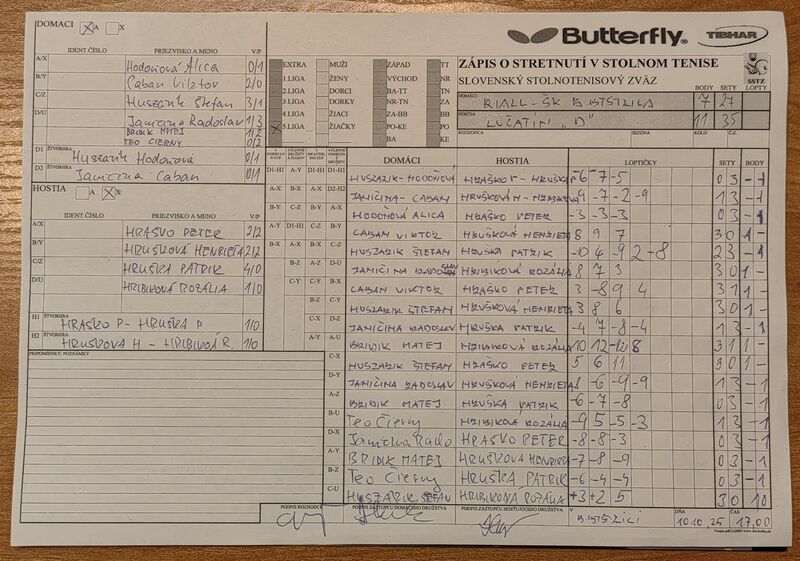 DOMACI A X
IDENT ČÍSLO PRIEZVISKO A MENO V/P
A/X Hodoňová Alica 0/1
B/Y Caban Viktor 2/0
C/Z Huszarik Štefan 3/1
D/U Janičina Radoslav 1/3
BRIDIK MATEJ 1/2
TEO ČIERNY 0/2
D1 ŠTVORHRA Huszarik Hodoňová 0/1
D2 ŠTVORHRA Janičina Caban 0/1
HOSTIA A X
IDENT ČÍSLO PRIEZVISKO A MENO V/P
A/X HRAŠKO PETER 2/2
B/Y HRUŠKOVÁ HENRIETA 2/2
C/Z HRUŠKA PATRIK 4/0
D/U HRIBIKOVÁ ROZÁLIA 1/0
H1 ŠTVORHRA HRAŠKO P - HRUŠKA P 1/0
H2 ŠTVORHRA HRUŠKOVÁ H - HRIBIKOVÁ R. 1/0
PRIPOMIENKY, POZNÁMKY
Butterfly TIBHAR
EXTRA MUŽI ZÁPAD TT
1.LIGA ŽENY VÝCHOD NR
2.LIGA DORCI BA-TT TN
3.LIGA DORKY NR-TN ZA
4.LIGA ŽIACI ZA-BB BB
5.LIGA ŽIAČKY PO-KE PO
BA KE
ZÁPIS O STRETNUTÍ V STOLNOM TENISE
SLOVENSKÝ STOLNOTENISOVÝ ZVÄZ
SSTZ
BODY SETY LOPTY
DOMÁCI RIALL-ŠK B.BYSTRICA 7 27
HOSTIA ĽUČATÍN "D" 11 35
ROZHODCA SEZÓNA KOLO Č.
DOMÁCI HOSTIA LOPTIČKY SETY BODY
D1-H1 A-Y B-X D1-H1 HUSZARIK-HODOŇOVÁ HRAŠKO P - HRUŠKA -6 -7 -5 0 3 - 1
JANIČINA - CABAN HRUŠKOVÁ H - HRIBIKOVÁ -9 -7 -2 -9 1 3 - 1
HODOŇOVÁ ALICA HRAŠKO PETER -3 -3 -3 0 3 - 1
CABAN VIKTOR HRUŠKOVÁ HENRIETA 8 9 7 3 0 1 -
HUSZARIK ŠTEFAN HRUŠKA PATRIK -10 4 -9 2 -8 2 3 - 1
JANIČINA RADOSLAV HRIBIKOVÁ ROZÁLIA 8 7 3 3 0 1 -
CABAN VIKTOR HRAŠKO PETER 3 -8 9 4 3 1 1 -
HUSZARIK ŠTEFAN HRUŠKOVÁ HENRIETA 3 8 6 3 0 1 -
JANIČINA RADOSLAV HRUŠKA PATRIK -4 7 -8 -4 1 3 - 1
BRIDIK MATEJ HRIBIKOVÁ ROZÁLIA 10 12 -12 8 3 1 1 -
C-X HUSZARIK ŠTEFAN HRAŠKO PETER 5 6 11 3 0 1 -
D-Y JANIČINA RADOSLAV HRUŠKOVÁ HENRIETA 8 -6 -9 -9 1 3 - 1
A-Z BRIDIK MATEJ HRUŠKA PATRIK -6 -7 -8 0 3 - 1
B-U Teo Čierny HRIBIKOVÁ ROZÁLIA -9 5 -5 -3 1 3 - 1
D-X Janičina Rado HRAŠKO PETER -8 -8 -3 0 3 - 1
A-Y BRIDIK MATEJ HRUŠKOVÁ HENRIETA -7 -8 -9 0 3 - 1
B-Z Teo Čierny HRUŠKA PATRIK -6 -4 -4 0 3 - 1
C-U HUSZARIK ŠTEFAN HRIBIKOVÁ ROZÁLIA +3 +2 5 3 0 1 0
PODPIS ROZHODCU PODPIS ZÁSTUPCU DOMÁCEHO DRUŽSTVA PODPIS ZÁSTUPCU HOSŤUJÚCEHO DRUŽSTVA V B.BYSTRICI DŇA 10.10.25 ČAS 17,00